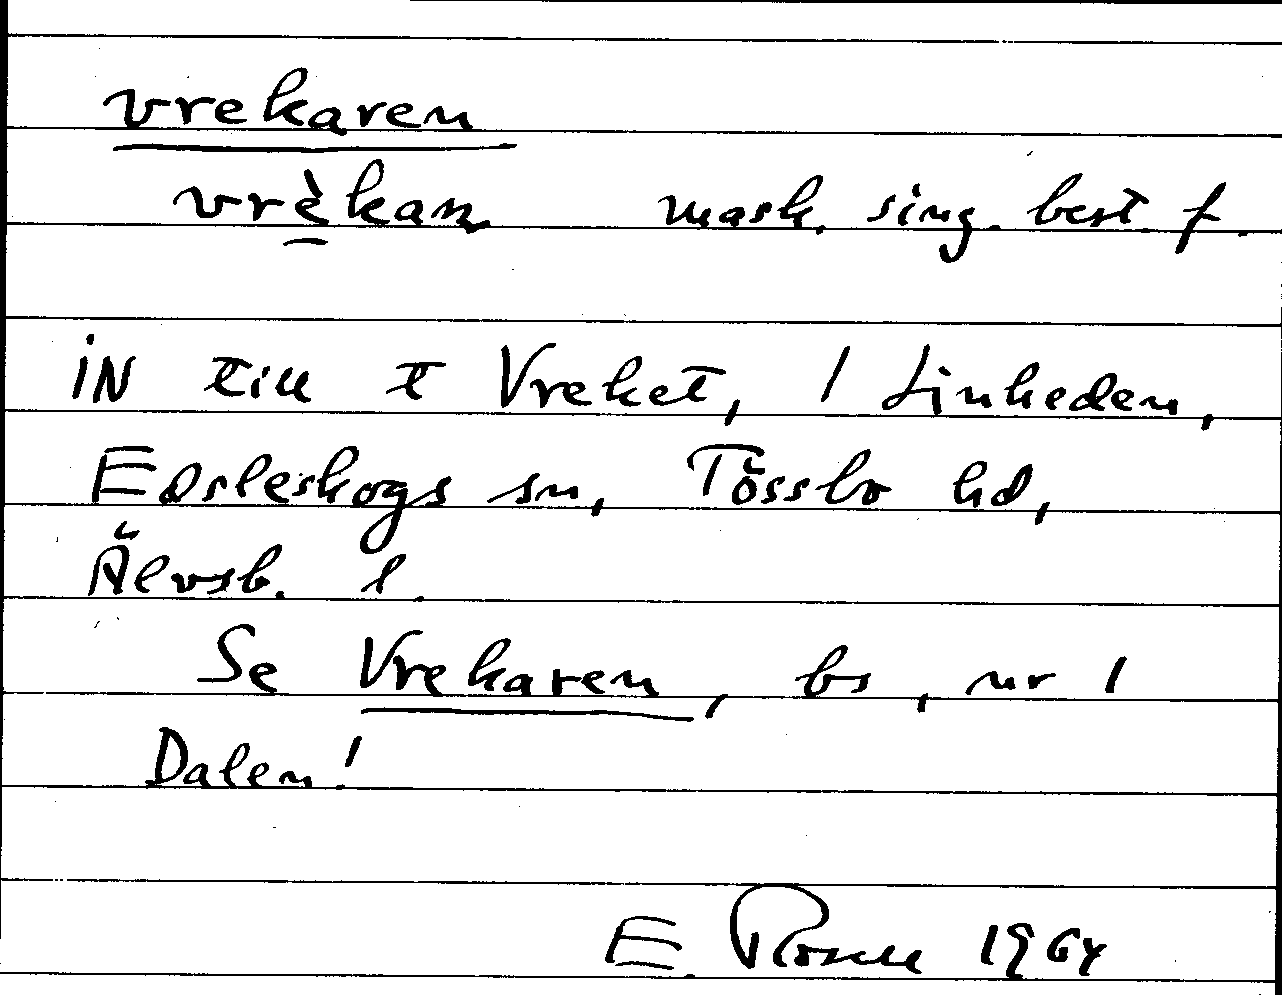 vrekaren
vrè̱kan mask. sing. best. f.
iN till t Vreket, 1 Linheden,
Edsleskogs sn, Tössbo hd,
Älvsb. l.
Se Vrekaren, bs, nr 1
Dalen!
E. Rosell 1964